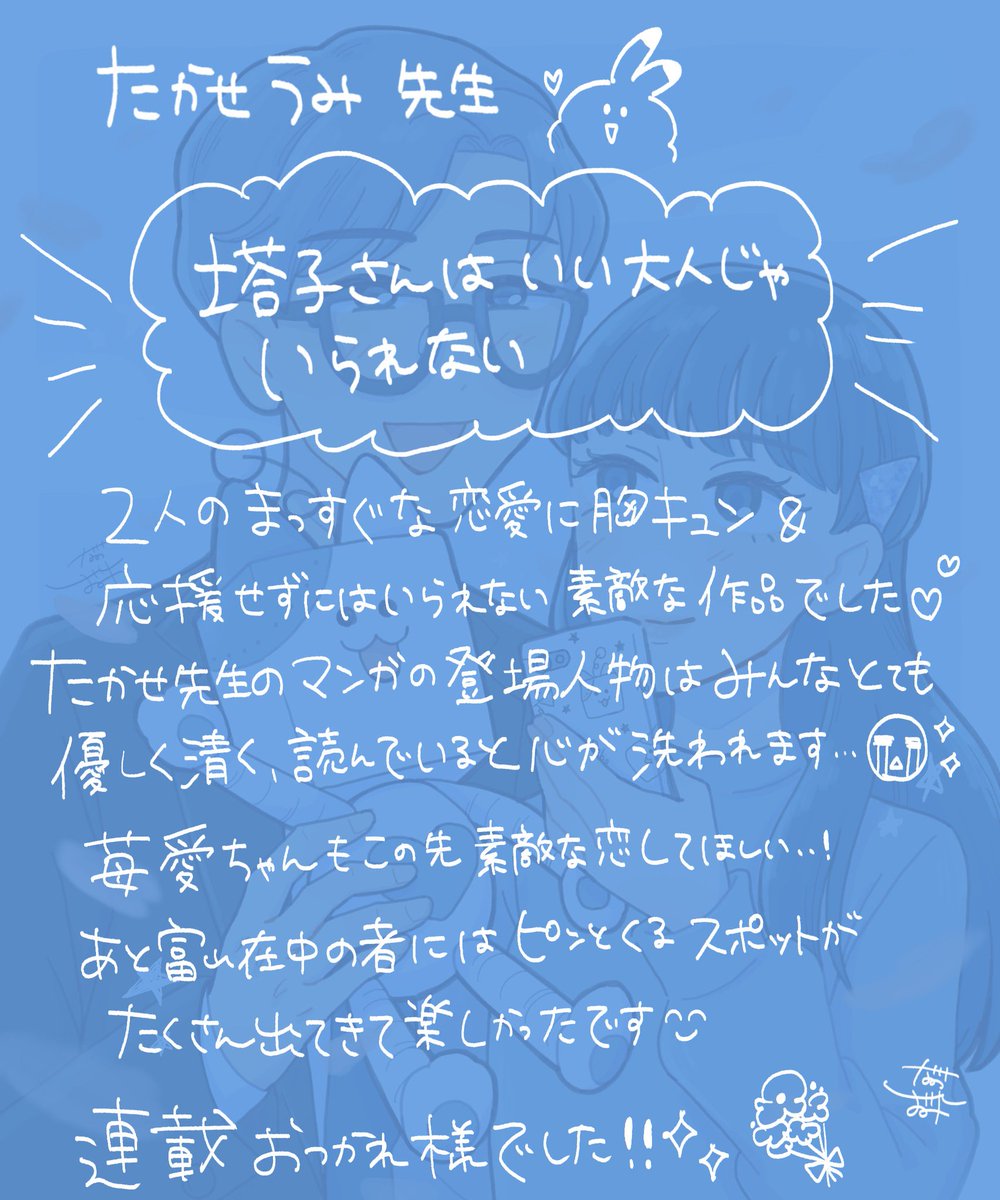 たかせうみ 先生
塔子さんは いい大人じゃ
いられない
2人の まっすぐな 恋愛に胸キュン &
応援せずにはいられない 素敵な 作品でした♡♡
たかせ先生の マンガの 登場人物は みんなとても
優しく清く、読んでいると 心が 洗われます…
苺愛ちゃんもこの先 素敵な恋してほしい..!
あと富山在中の者には ピンとくる スポットが
たくさん出てきて 楽しかったです
連載 おつかれ様でした!!